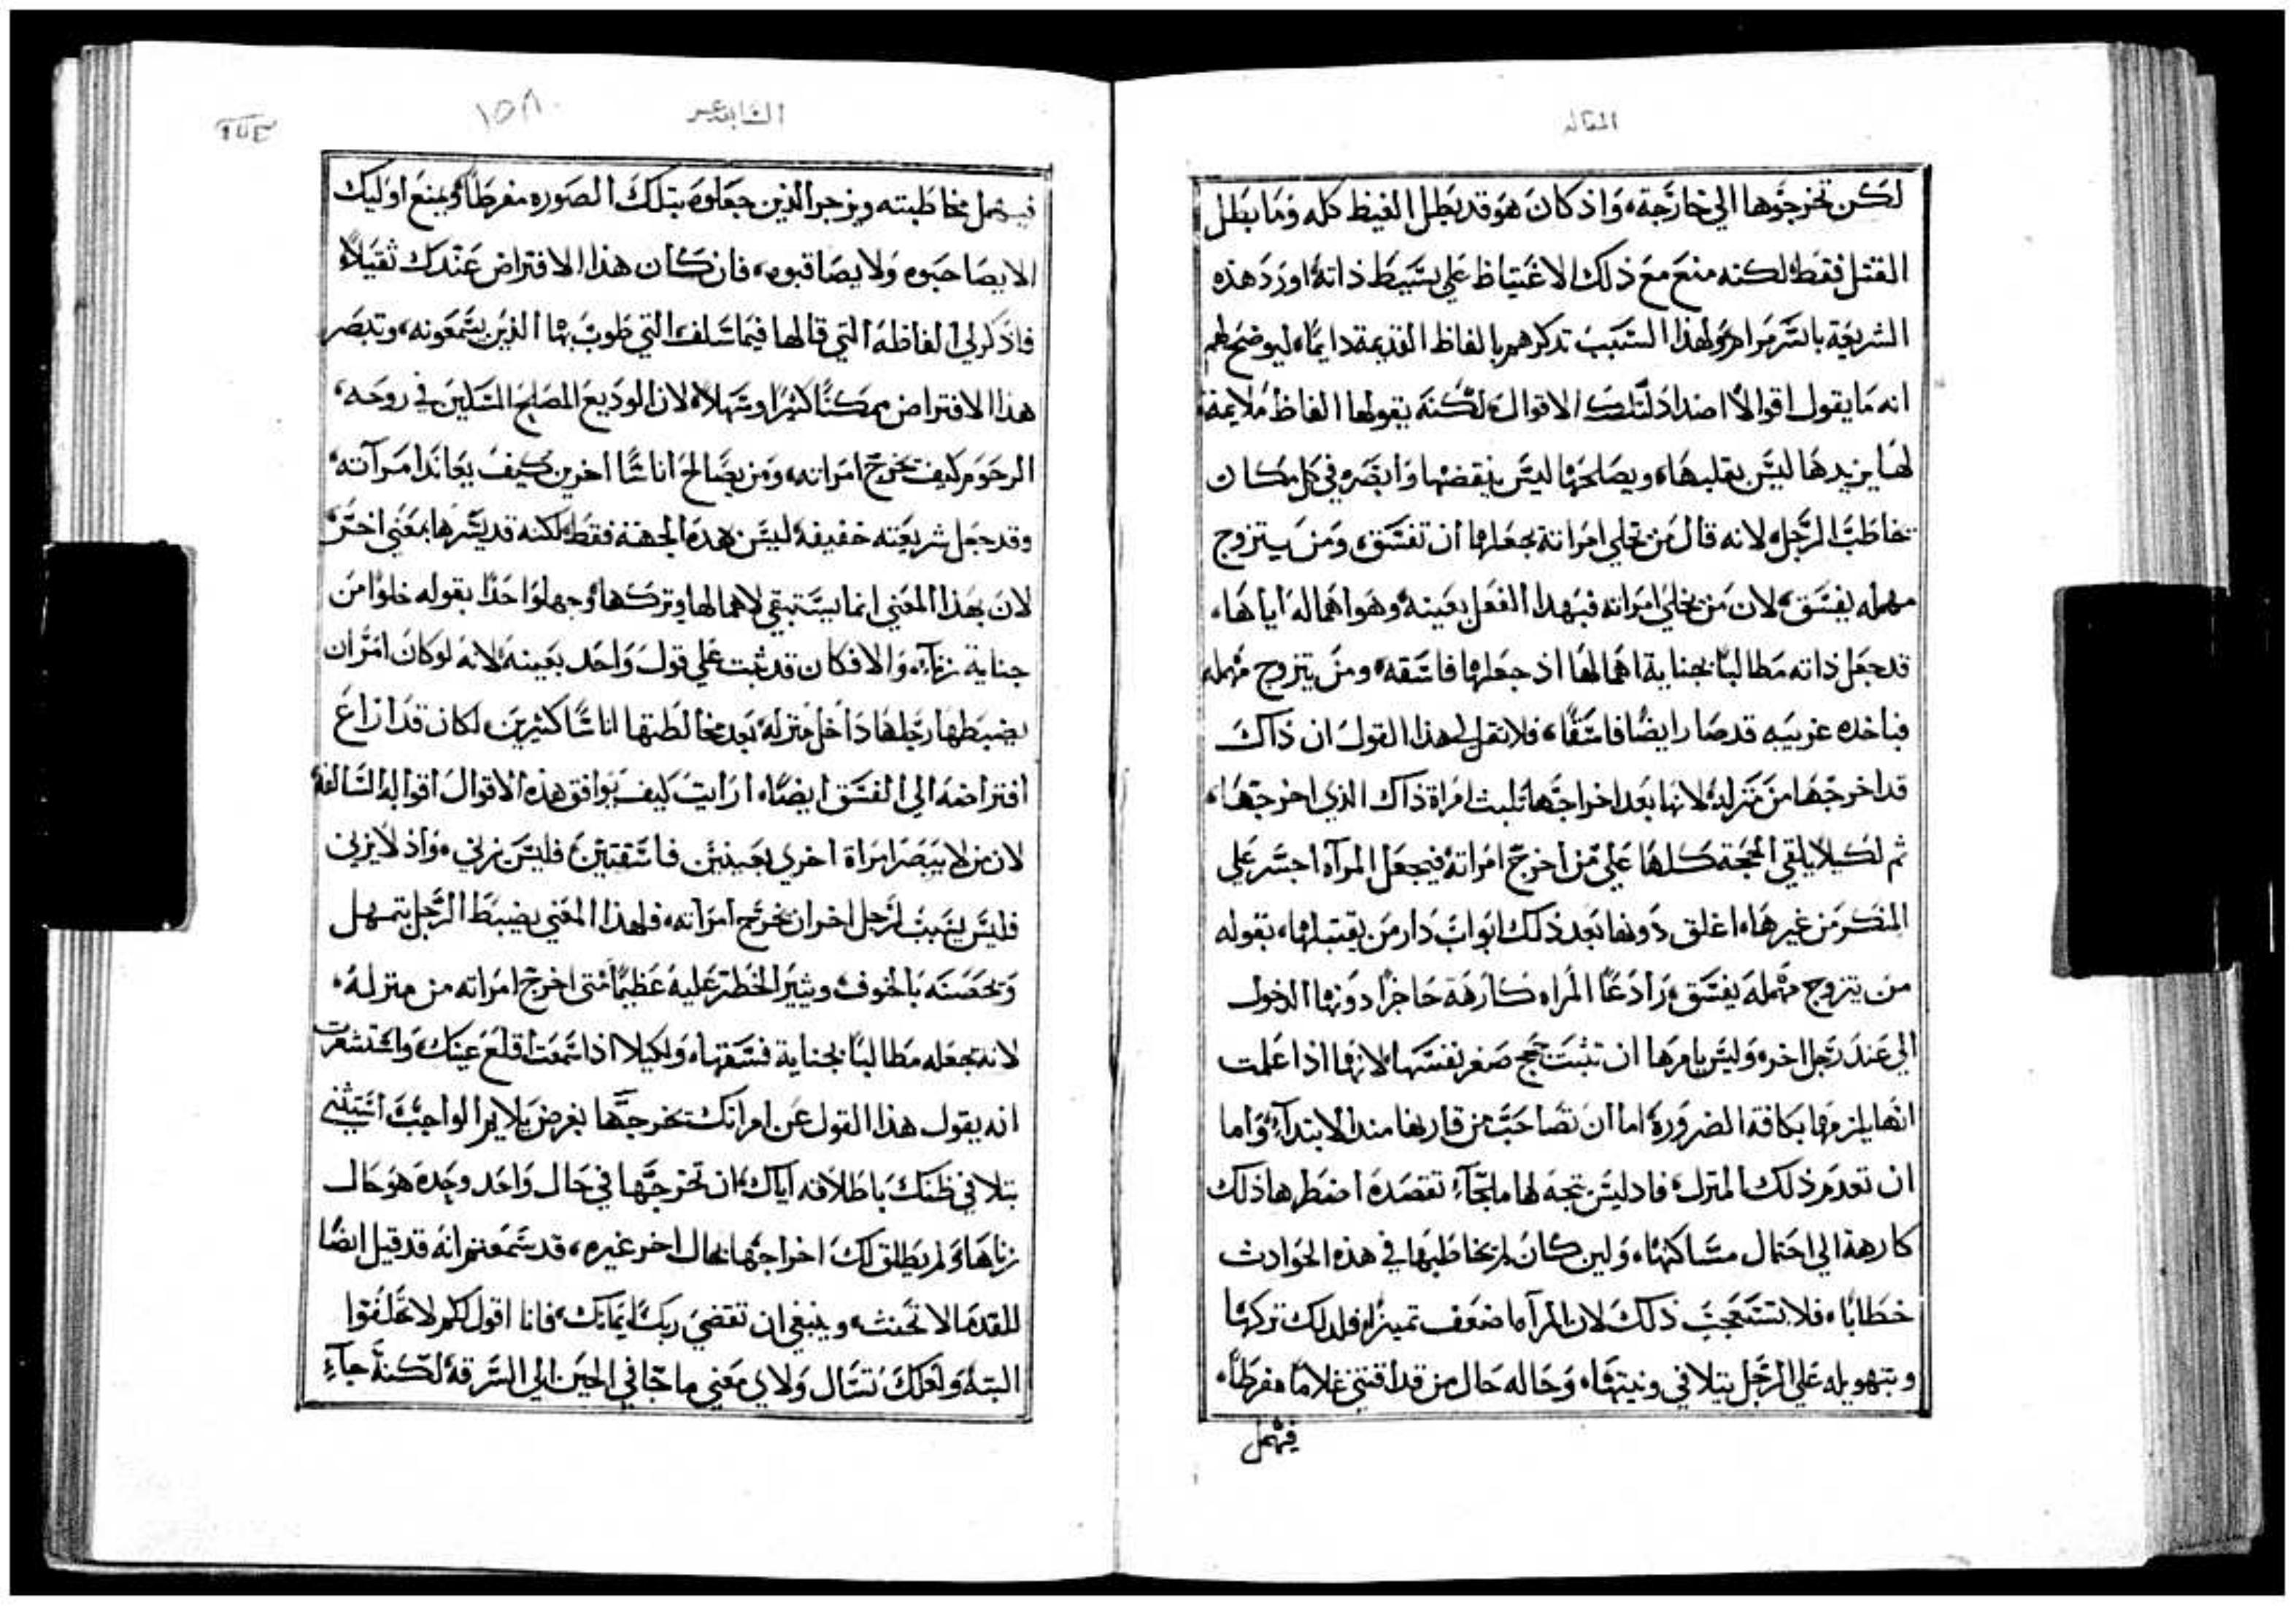 المقاله
لكن تخرجوها الي خارجة، واذ كان هو قد بطل الغيظ كله وما بطل
القتل فقط لكنه منع مع ذلك الاغتياظ علي بسيط ذاته اورد هذه
الشريعة بايسر مرام ولهذا السبب تدكرهم بالفاظ القديمة دايما، ليوضح لهم
انه ما يقول اقوالا اضداد لتلك الاقوال، لكنه يقولها الفاظ ملايمة
لها يزيدها ليس يقلبها، ويصلحها ليس ينقضها وابصره في كل مكان
تخاطب الرجل، لانه قال من تخلي امراته يجعلها ان تفسق، ومن يتزوج
مهمله يفسق، لان من يخلي امراته فبهدا الفعل بعينه وهو اهماله اياها،
قد جعل ذاته مطالبا بجناية اهمالها اذ جعلها فاسقه، ومن يتزوج مهمله
فباخده غريبه قد صار ايضا فاسقا، فلا تقل لي هذا القول ان ذاك
قد اخرجها من منزله، لانها بعد اخراجها تلبث امراة ذاك الذي اخرجها،
ثم لكيلا يلقي الحجة كلها علي من اخرج امراته فيجعل المرآه اجسر علي
المنكر من غيرها، اغلق دونها بعد ذلك ابواب دار من يقتبلها، بقوله
من يتزوج مهمله يفسق، رادعا المراه كارهة حاجزا دونها الدخول
الي عند رجل اخر، وليس يامرها ان تثبت حجج صغر نفسها، لانها اذا علمت
انها يلزمها بكافة الضرورة اما ان تصاحب من قاربها مند الابتدآء، واما
ان تعدم ذلك المنزل، فاد ليس تتجه لها ملجآء تقصده اضطرها ذلك
كارهة الي احتمال مساكنها، ولين كان لم يخاطبها في هذه الحوادث
خطابا، فلا تستعجب ذلك لان المرآه اضعف تميزا، فلدلك تركها
وبتهويله علي الرجل يتلافي ونيتها، وحاله حال من قد اقتني غلاما مفرطا،
فيهمل
السابعه عشر
١٥٨
فيهمل مخاطبته ويزجر الذين جعلوه بتلك الصوره مفرطا ويمنع اوليك
الا يصاحبوه ولا يصاقبوه، فان كان هذا الافتراض عندك ثقيلا،
فاذكر لي الفاظه التي قالها فيما سلف، التي طوب بها الذين يسمعونه، وتبصر
هذا الافتراض ممكنا كثيرا وسهلا، لان الوديع المصلح المسكين في روحه،
الرحوم كيف تخرج امراته، ومن يصالح اناسا اخرين كيف يعاند امرآته،
وقد جعل شريعته خفيفه ليس بهده الجهة فقط، لكنه قد يسرها بمعني اخر،
لان بهذا المعني انما يستبقي لاهمالها وتركها وجها واحدا بقوله خلوا من
جناية زناء، والا فكان قد ثبت علي قول واحد بعينه، لانه لو كان امر ان
يضبطها رجلها داخل منزله بعد مخالطتها اناسا كثيرين، لكان قد ازاغ
افتراضه الي الفسق ايضا، ارايت كيف توافق هذه الاقوال اقواله السالفة
لان من لا يبصر امراة اخري بعينين فاسقتين، فليس يزني، واذ لا يزني
فليس يسبب لرجل اخر ان يخرج امراته، فلهذا المعني يضبط الرجل بتمهل
وتحصنه بالخوف، ويثير الخطر عليه عظيما متي اخرج امراته من منزله،
لانه تجعله مطالبا بجناية فسقها، ولكيلا اذا سمعت اقلع عينك، واستشعرت
انه يقول هذا القول عن امراتك تخرجها بغرض يلايم الواجب استثني
بتلافي ظنك باطلاقه اياك، ان تخرجها في حال واحد وحده هو حال
زناها، ولم يطلق لك اخراجها بحال اخر غيره، قد سمعتم انه قد قيل ايضا
للقدما لا تحنث، وينبغي ان تقضي ربك ايمانك، فانا اقول لكم لا تحلفوا
البته، ولعلك تسال ولاي معني ما جا في الحين الي السرقه، لكنه جآء